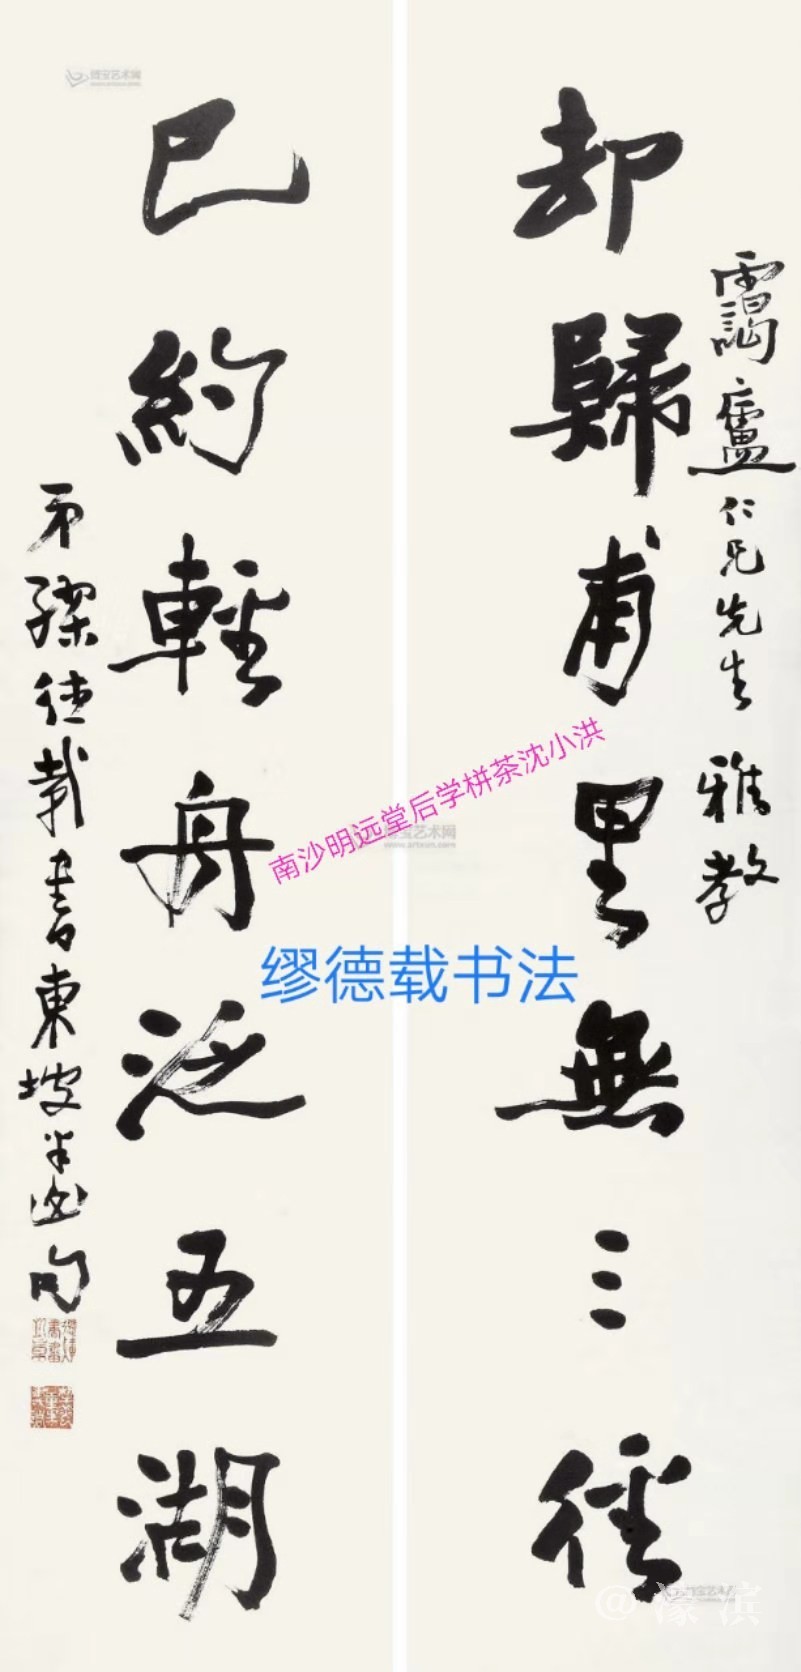 靄廬仁兄先生雅教
却歸甫里無三徑
已約輕舟泛五湖
弟繆德載書東坡半山句
南沙明远堂后学栟茶沈小洪
缪德载书法